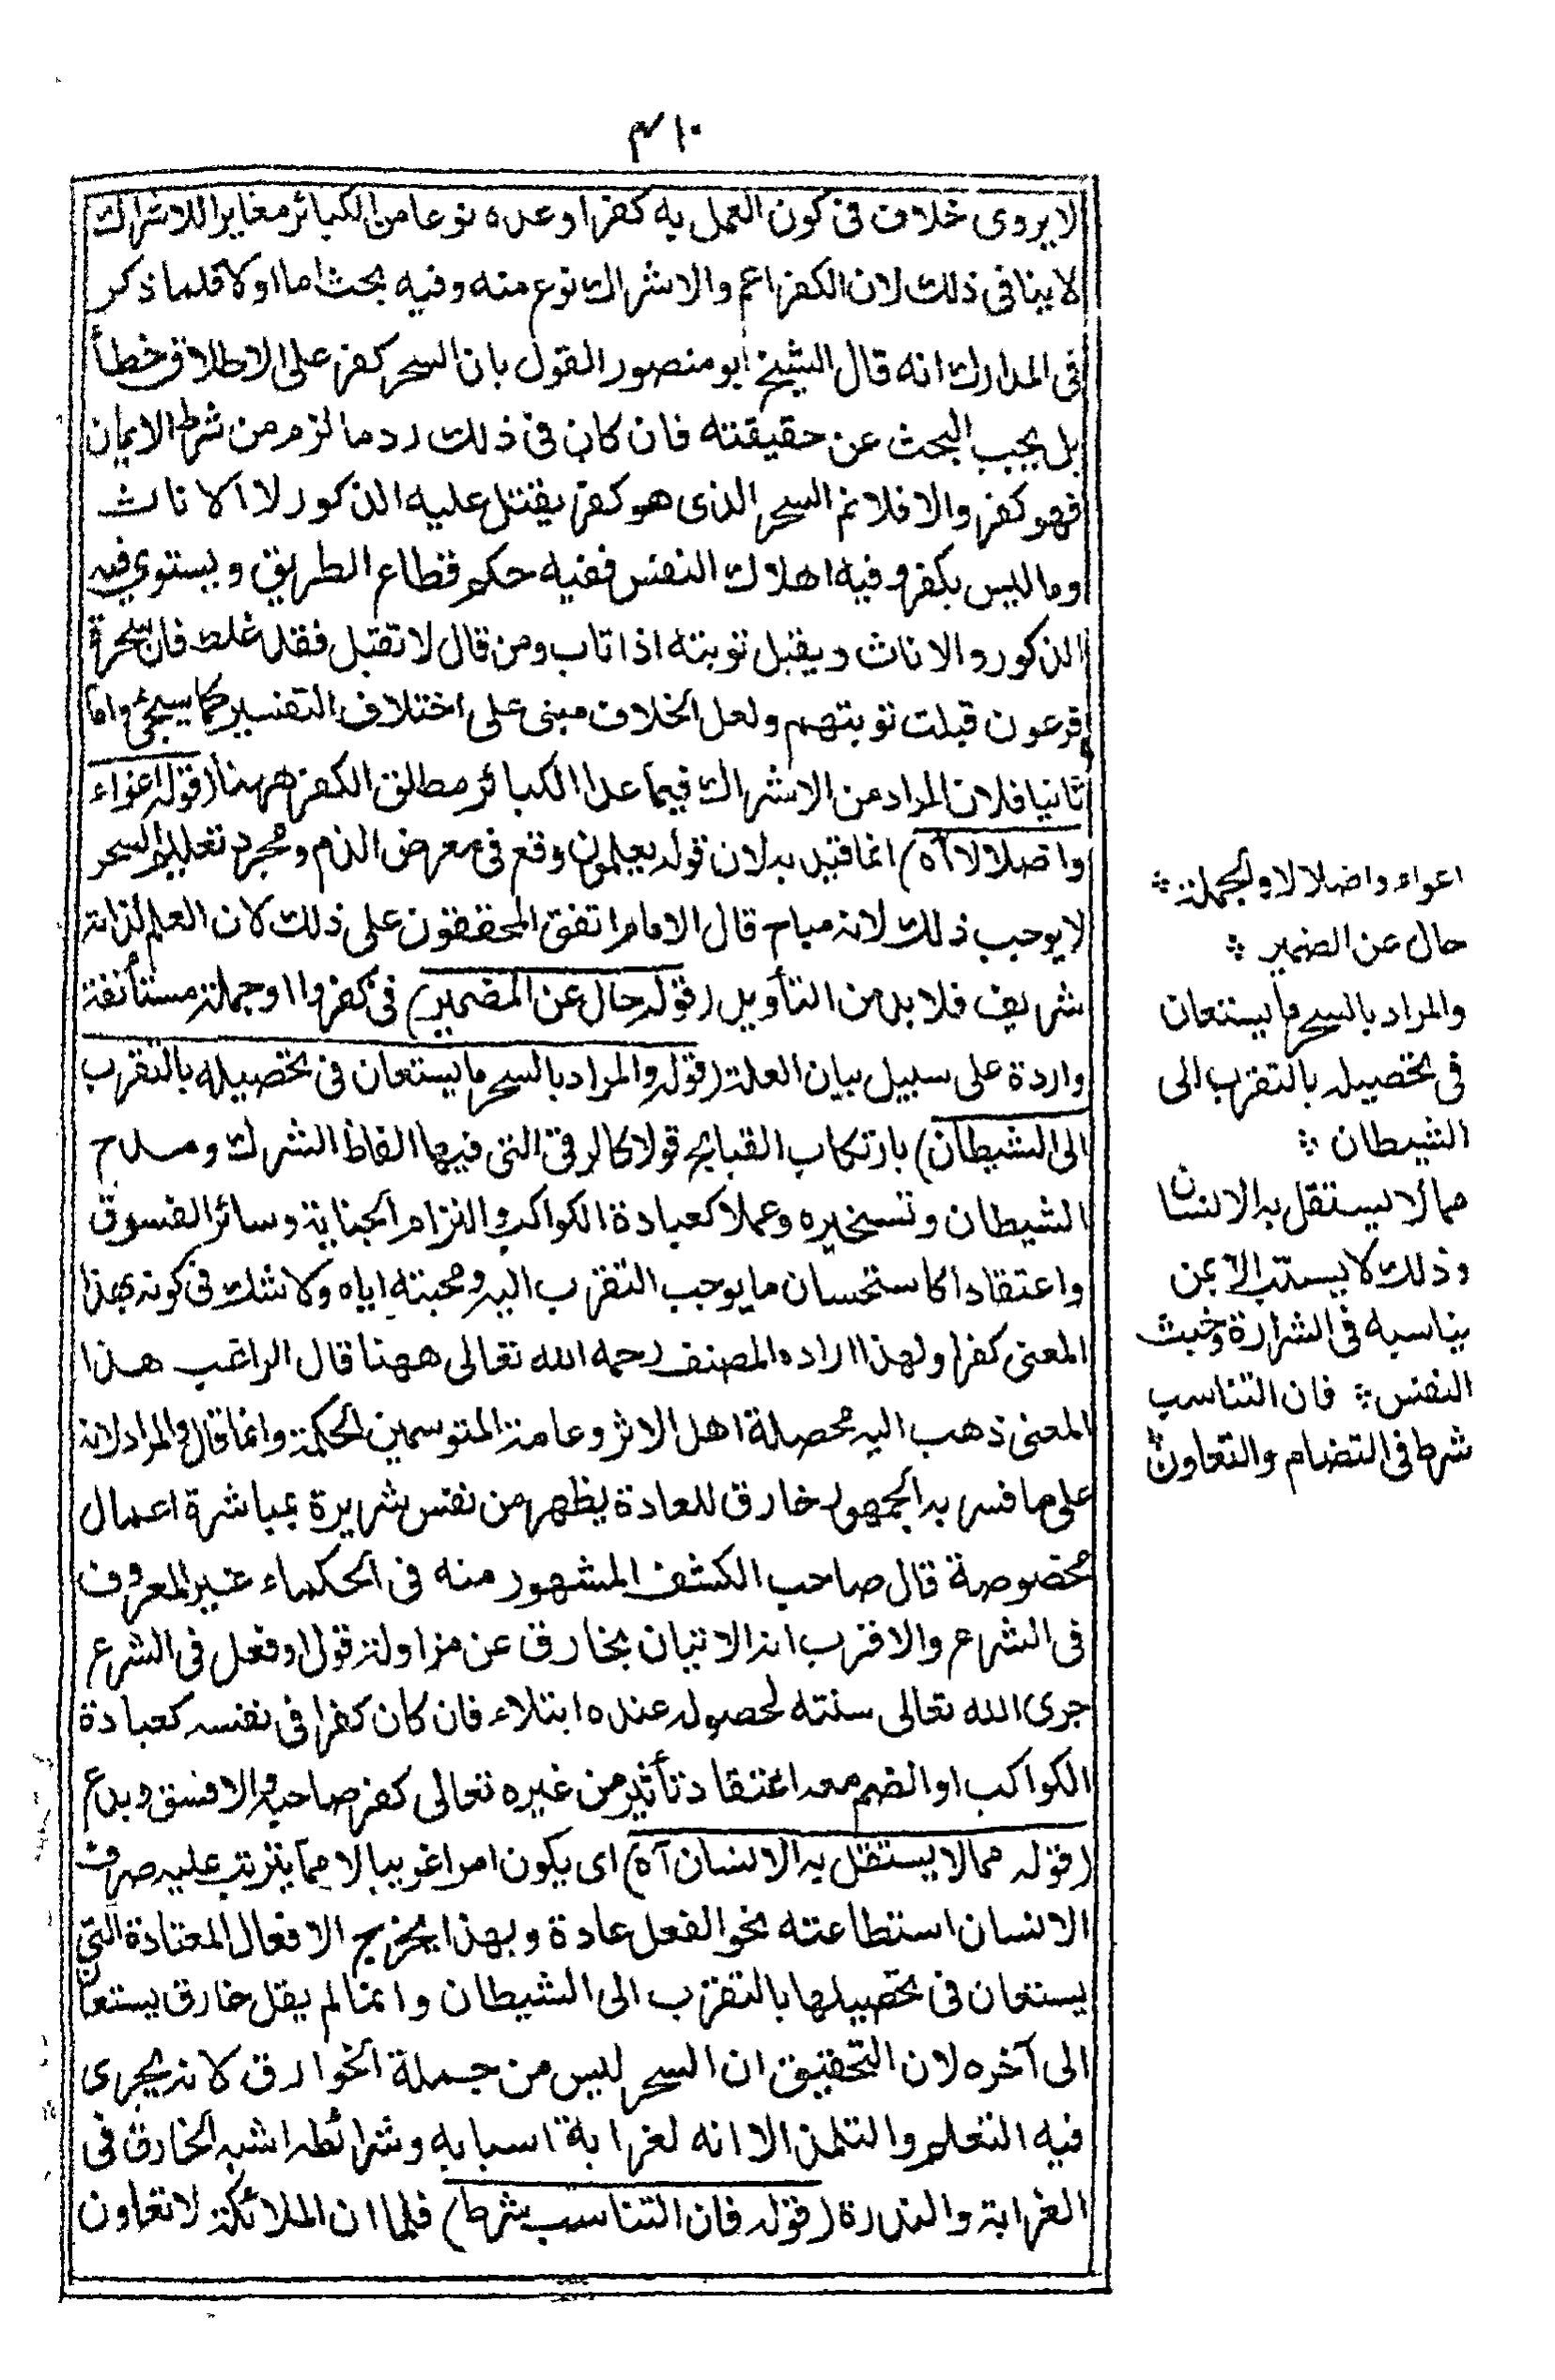 ٤١٠
لا يروى خلاف فى كون العمل به كفرا وعده نوعا من الكبائر مغايرا للاشراك
لا ينافى ذلك لان الكفر اعم والاشراك نوع منه وفيه بحث اما اولا فلما ذكر
فى المدارك انه قال الشيخ ابو منصور القول بان السحر كفر على الاطلاق خطأ
بل يجب البحث عن حقيقته فان كان فى ذلك رد ما لزم من شرط الايمان
فهو كفر والا فلا ثم السحر الذى هو كفر يقتل عليه الذكور لا الاناث
وما ليس بكفر وفيه اهلاك النفس ففيه حكم قطاع الطريق ويستوى فيه
الذكور والاناث ويقبل توبته اذا تاب ومن قال لا تقبل فقد غلط فان سحرة
فرعون قبلت توبتهم ولعل الخلاف مبنى على اختلاف التفسير كما سيجئ واما
ثانيا فلان المراد من الاشراك فيما عدا الكبائر مطلق الكفر ههنا (قوله اغواء
واضلالا آه) انما قيل به لان قوله يعلمون وقع فى معرض الذم ومجرد تعليم السحر
لا يوجب ذلك لانه مباح قال الامام اتفق المحققون على ذلك لان العلم لذاته
شريف فلا بد من التأويل (قوله حال عن الضمير) فى كفروا او جملة مستأنفة
واردة على سبيل بيان العلة (قوله والمراد بالسحر ما يستعان فى تحصيله بالتقرب
الى الشيطان) بارتكاب القبايح قولا كالرقى التى فيها الفاظ الشرك ومدح
الشيطان وتسخيره وعملا كعبادة الكواكب والتزام الجنابة وسائر الفسوق
واعتقادا كاستحسان ما يوجب التقرب اليه ومحبته اياه ولا شك فى كونه بهذا
المعنى كفرا ولهذا اراده المصنف رحمه الله تعالى ههنا قال الراغب هذا
المعنى ذهب اليه محصلة اهل الاثر وعامة المتوسمين بالحكمة وانما قال والمراد لانه
على ما فسر به الجمهور خارق للعادة يظهر من نفس شريرة بمباشرة اعمال
مخصوصة قال صاحب الكشف المشهور منه فى الحكماء غير المعروف
فى الشرع والاقرب انه الاتيان بخارق عن مزاولة قول او فعل فى الشرع
جرى الله تعالى سنته لحصوله عنده ابتلاء فان كان كفرا فى نفسه كعبادة
الكواكب او انضم معه اعتقاد تأثير من غيره تعالى كفر صاحبه والا فسق وبدع
(قوله مما لا يستقل به الانسان آه) اى يكون امرا غريبا لا مما يترتب عليه صرف
الانسان استطاعته نحو الفعل عادة وبهذا يخرج الافعال المعتادة التى
يستعان فى تحصيلها بالتقرب الى الشيطان وانما لم يقل خارق يستعان
الى آخره لان التحقيق ان السحر ليس من جملة الخوارق لانه يجرى
فيه التعلم والتلمذ الا انه لغرابة اسبابه وشرائطه اشبه الخارق فى
الغرابة والندرة (قوله فان التناسب شرط) فلما ان الملائكة لا تعاون
اغواء واضلالا والجملة ⁘
حال عن الضمير ⁘
والمراد بالسحر ما يستعان
فى تحصيله بالتقرب الى
الشيطان ⁘
مما لا يستقل به الانسان
وذلك لا يستتب الا بمن
يناسبه فى الشرارة وخبث
النفس ⁘ فان التناسب
شرط فى التضام والتعاون